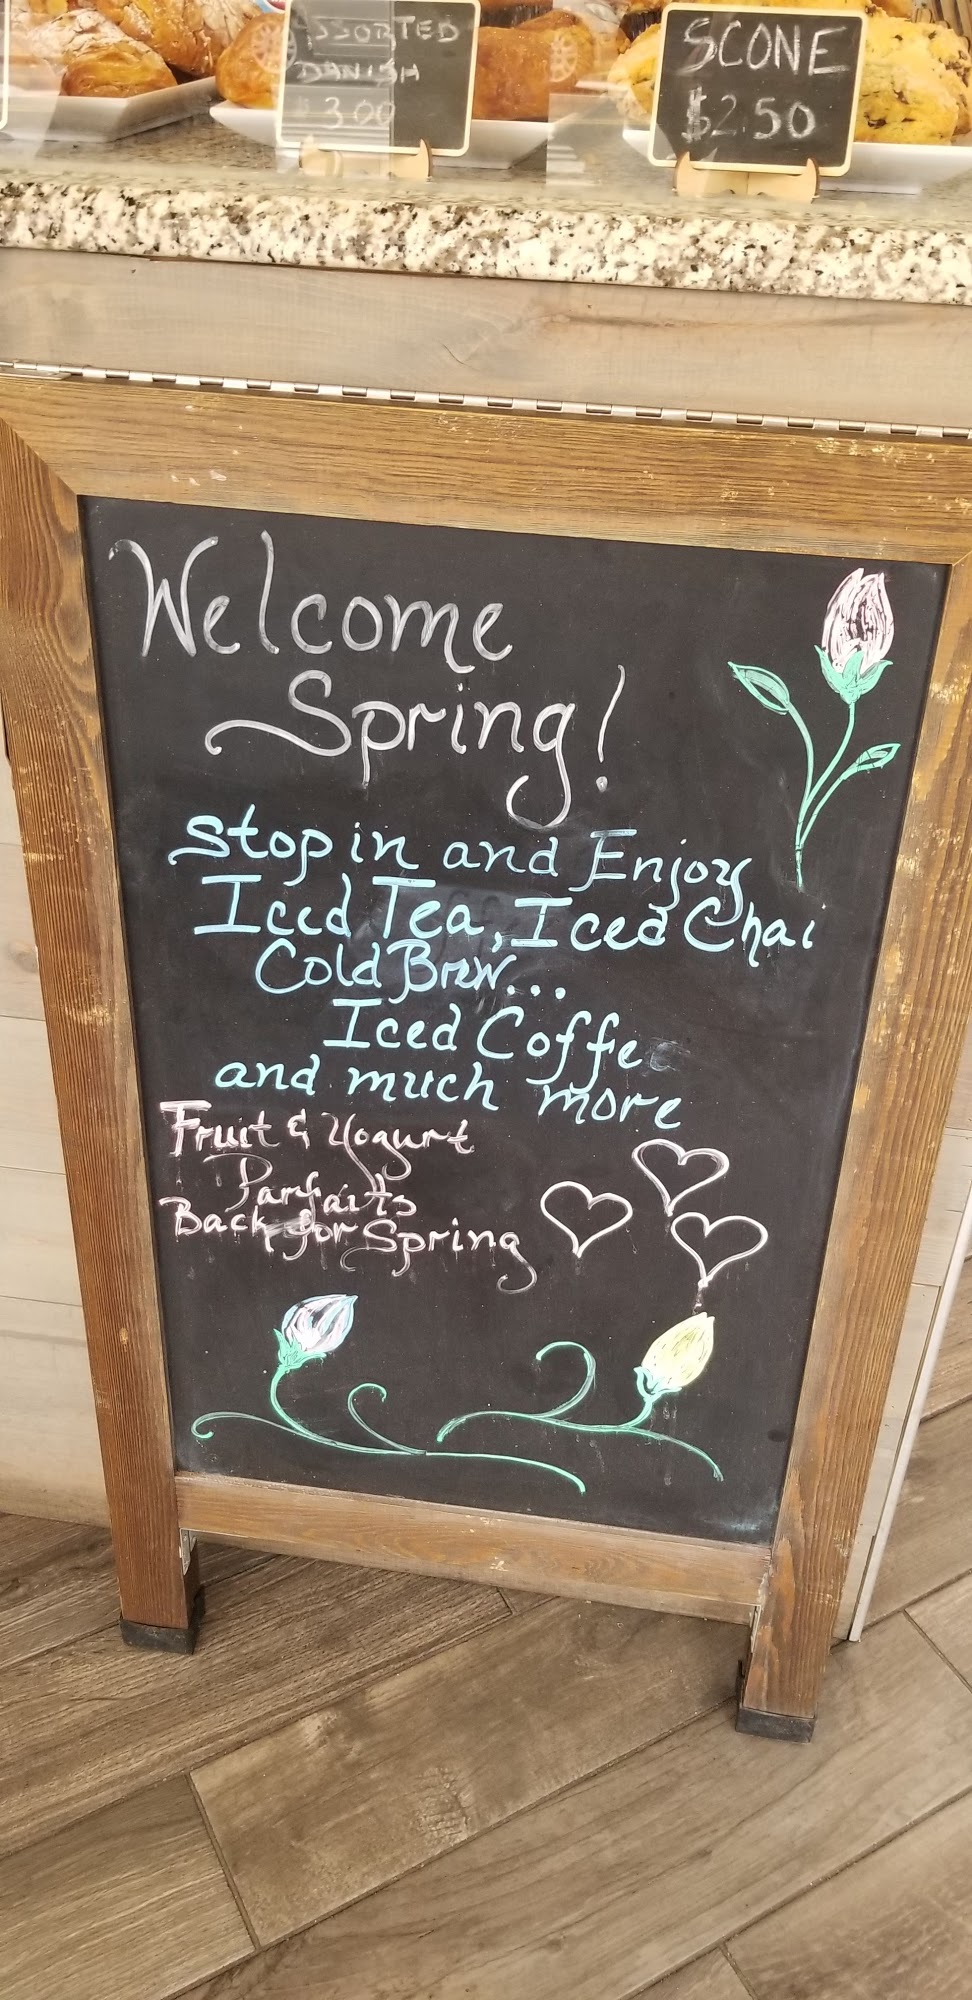 ASSORTED
DANISH
$3.00
SCONE
$2.50
Welcome
Spring!
Stop in and Enjoy
Iced Tea, Iced Chai
Cold Brew...
Iced Coffe
and much more
Fruit & Yogurt
Parfaits
Back for Spring